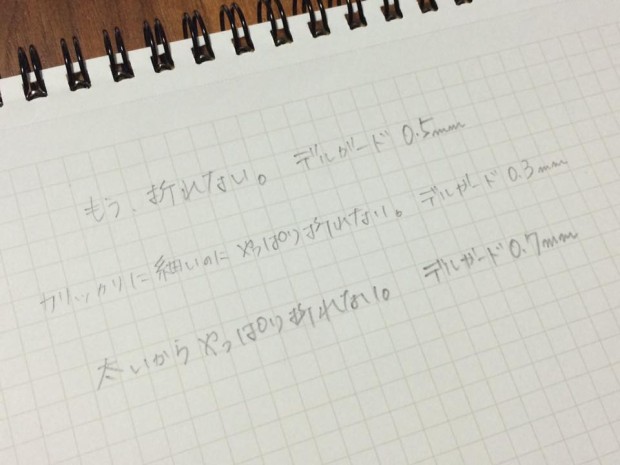 もう、折れない。 デルガード 0.5mm
カリッカリに細いのにやっぱり折れない。 デルガード 0.3mm
太いからやっぱり折れない。 デルガード 0.7mm